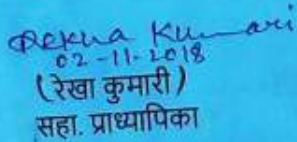 Rekha Kumari
02-11-2018
(रेखा कुमारी)
सहा. प्राध्यापिका